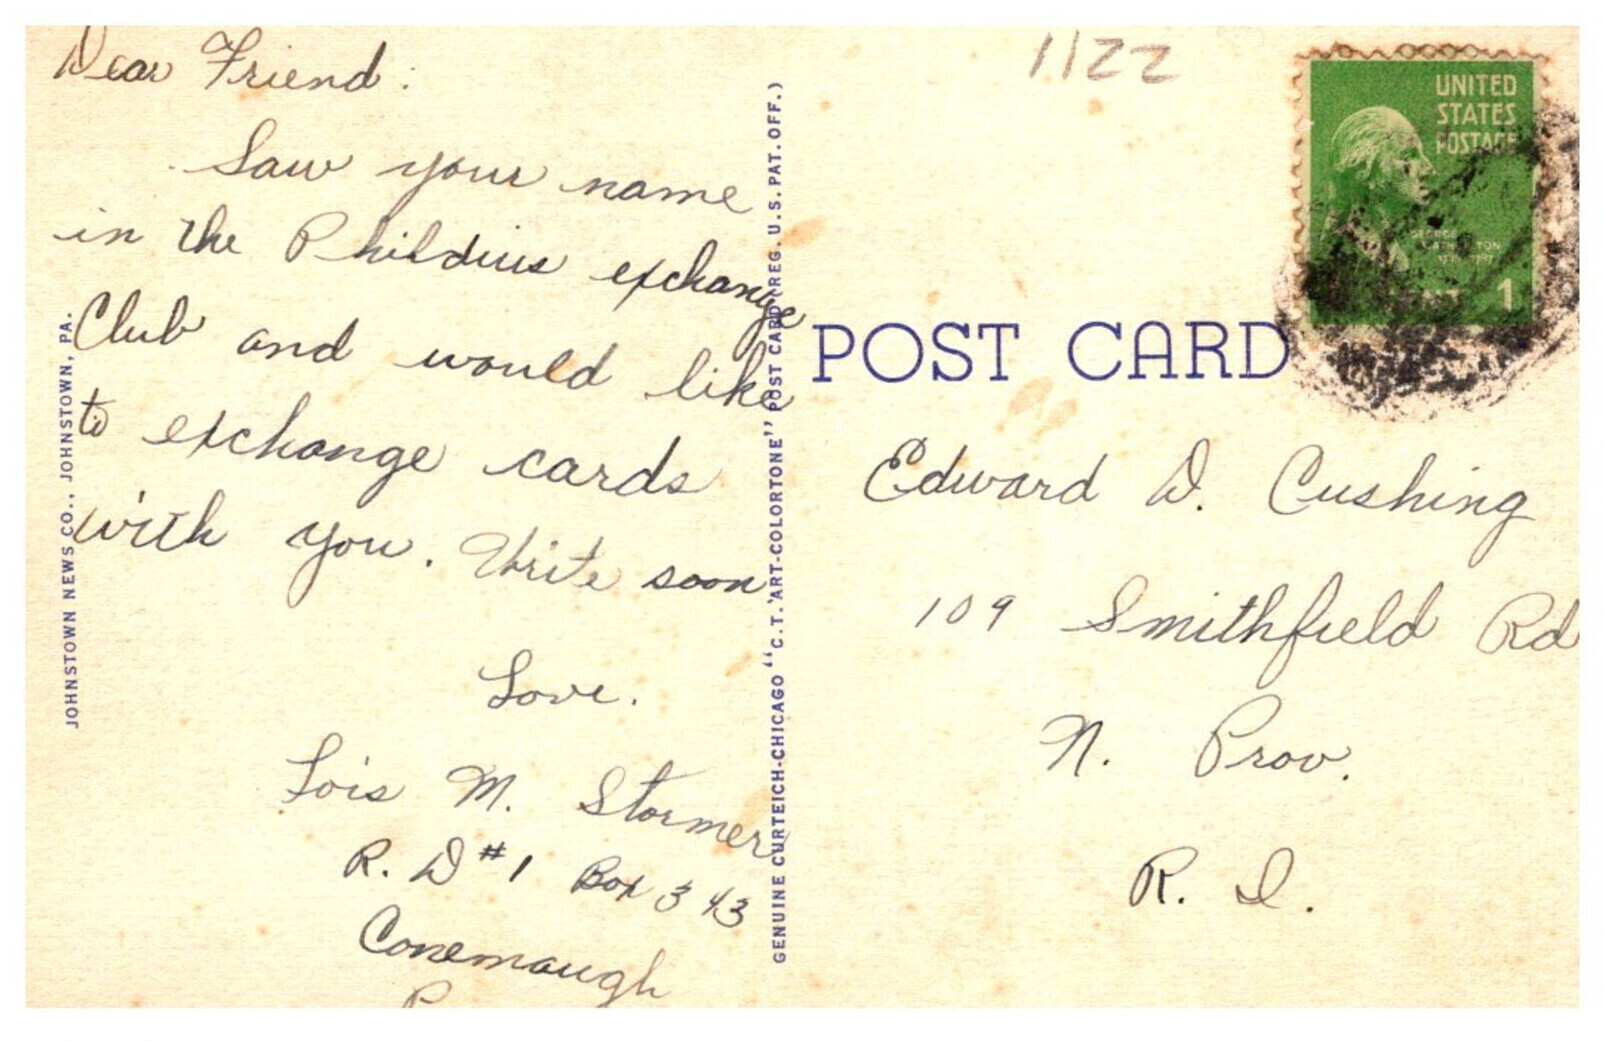 Dear Friend:
Saw your name
in the Phildius exchange
Club and would like
to exchange cards
with you. Write soon
Love.
Lois M. Stormer
R. D #1 Box 343
Conemaugh
P
JOHNSTOWN NEWS CO., JOHNSTOWN, PA.
GENUINE CURTEICH-CHICAGO "C.T. ART-COLORTONE" POST CARD (REG. U.S. PAT. OFF.)
1122
UNITED
STATES
POSTAGE
GEORGE
WASHINGTON
1
POST CARD
Edward D. Cushing
109 Smithfield Rd
N. Prov.
R. I.